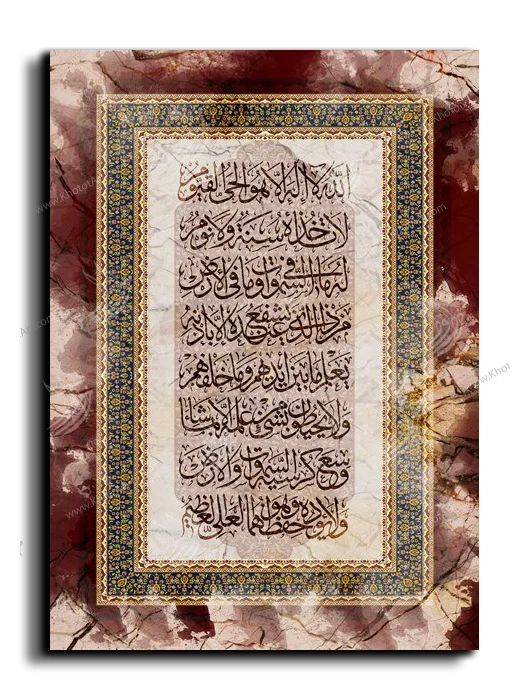 الله لا اله الا هو الحي القيوم
لا تاخذه سنة ولا نوم
له ما في السموات وما في الارض
من ذا الذي يشفع عنده الا باذنه
يعلم ما بين ايديهم وما خلفهم
ولا يحيطون بشيء من علمه الا بما شاء
وسع كرسيه السموات والارض
ولا يوده حفظهما وهو العلي العظيم